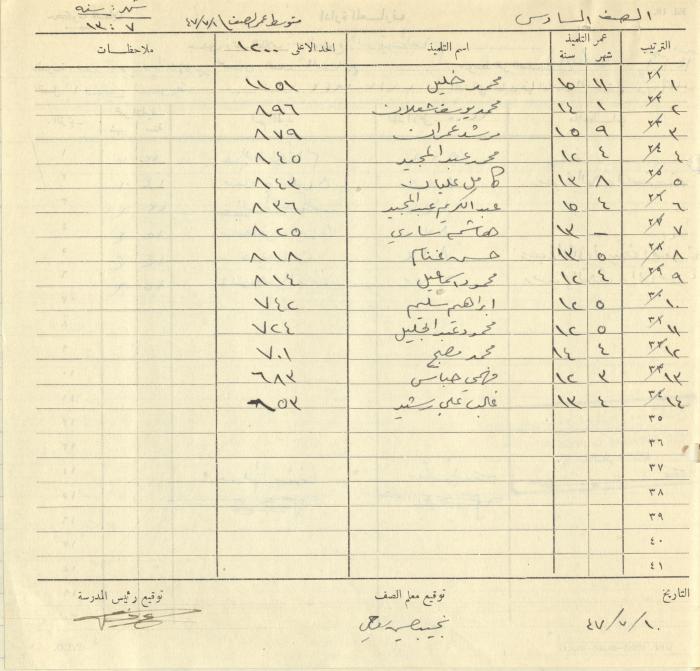 الصف السادس متوسط عمر الصف ٤٧/٧/٨ شهر : سنة
٧ : ١٣
الترتيب عمر التلميذ اسم التلميذ الحد الاعلى ١٢٠٠ ملاحظات
شهر سنة
١ ١١ ١٥ محمد خليل ١١٥١
٢ ١ ١٤ محمد يوسف شعلان ٨٩٦
٣ ٩ ١٥ مرشد عمران ٨٧٩
٤ ٤ ١٢ محمد عبد المجيد ٨٤٥
٥ ٨ ١٣ كامل عليان ٨٤٣
٦ ٤ ١٥ عبد الكريم عبد المجيد ٨٣٦
٧ - ١٣ هاشم ساري ٨٢٥
٨ ٥ ١٣ حسن غنام ٨١٨
٩ ٤ ١٢ محمود اسماعيل ٨١٤
١٠ ٥ ١٢ ابراهيم سليم ٧٤٢
١١ ٥ ١٢ محمود عبد الجليل ٧٢٤
١٢ ٤ ١٤ محمد مصبح ٧٠١
١٣ ٣ ١٢ فهمي عباس ٦٨٣
١٤ ٤ ١٣ غالب علي رشيد ٨٥٣
٣٥
٣٦
٣٧
٣٨
٣٩
٤٠
٤١
التاريخ توقيع معلم الصف توقيع رئيس المدرسة
٤٧/٧/١٠